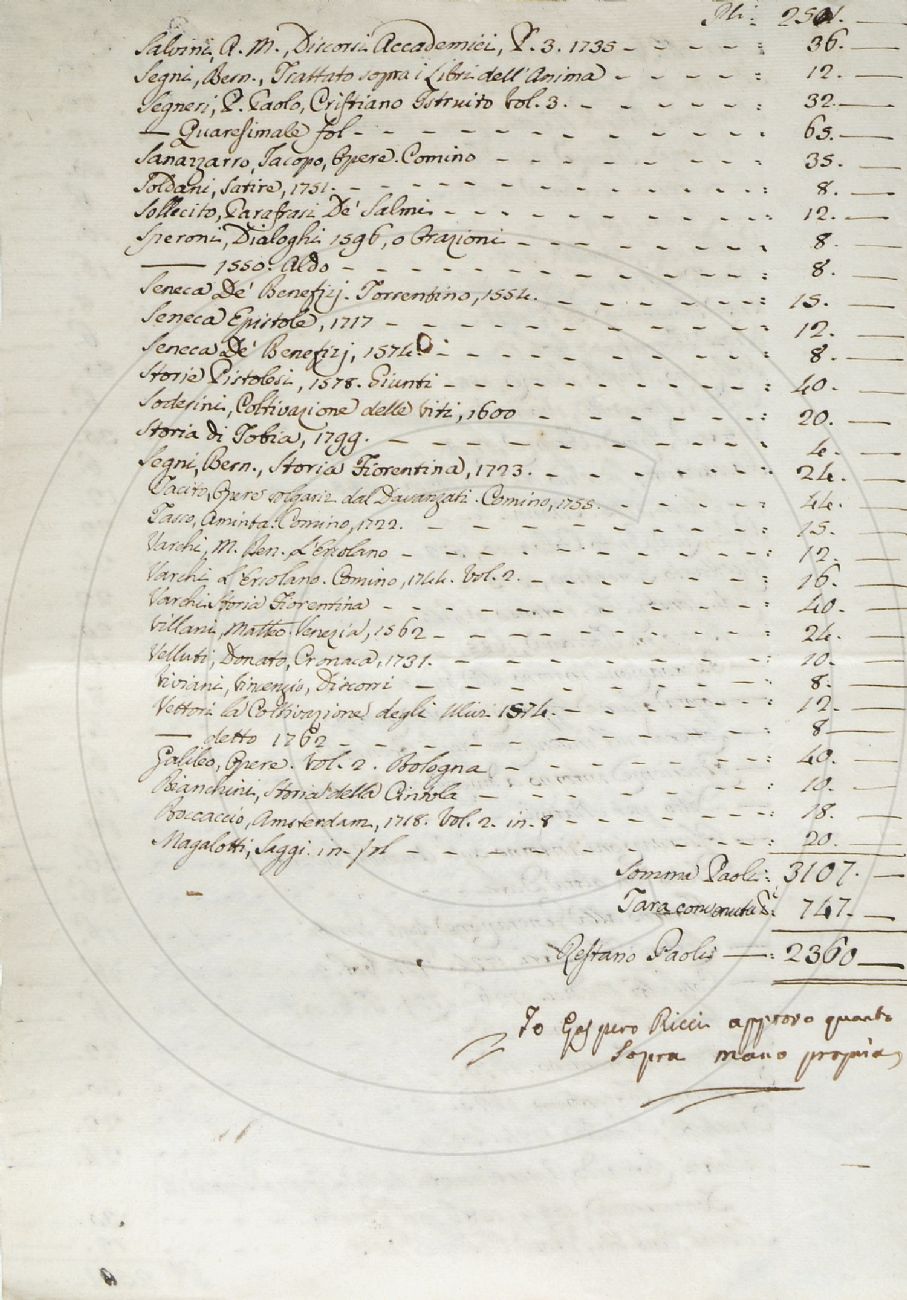 Pli: 2501.
Salvini, A. M., Discorsi Accademici, P. 3. 1735 - - - - : 36.
Segni, Bern., Trattato sopra i Libri dell'Anima - - - - : 12.
Segneri, P. Paolo, Cristiano Istruito Vol. 3. - - - - : 32.
— Quaresimale fol - - - - : 65.
Sanazzarro, Jacopo, Opere. Comino - - - - : 35.
Soldani, Satire, 1751. - - - - : 8.
Sollecito, Parafrasi De' Salmi - - - - : 12.
Speroni, Dialoghi 1596, o Orazioni - - - - : 8.
— 1550. Aldo - - - - : 8.
Seneca De' Benefizj. Torrentino, 1554. - - - - : 15.
Seneca Epistole, 1717 - - - - : 12.
Seneca De' Benefizj, 1574 - - - - : 8.
Storie Pistolesi, 1578. Giunti - - - - : 40.
Soderini, Coltivazione delle Viti, 1600 - - - - : 20.
Storia di Tobia, 1799. - - - - : 4.
Segni, Bern., Storia Fiorentina, 1723. - - - - : 24.
Tacito, Opere volgariz. dal Davanzati. Comino, 1755. - - - - : 44.
Tasso, Aminta. Comino, 1722. - - - - : 15.
Varchi, M. Ben. L'Ercolano - - - - : 12.
Varchi L'Ercolano. Comino, 1744. Vol. 2. - - - - : 16.
Varchi Storia Fiorentina - - - - : 40.
Villani, Matteo. Venezia, 1562 - - - - : 24.
Velluti, Donato, Cronaca, 1731. - - - - : 10.
Viviani, Vincenzio, Discorsi - - - - : 8.
Vettori la Coltivazione degli Ulivi 1574. - - - - : 12.
— detto 1762 - - - - : 8
Galileo, Opere. Vol. 2. Bologna - - - - : 40.
Bianchini, Storia della Cintola - - - - : 10.
Boccaccio, Amsterdam, 1718. Vol. 2. in 8 - - - - : 18.
Magalotti, Saggi. in fol - - - - : 20.
Somma Paoli: 3107.
Tara convenuta : 747.
Restano Paoli — : 2360
Io Gaspero Ricci approvo quanto
Sopra mano propria